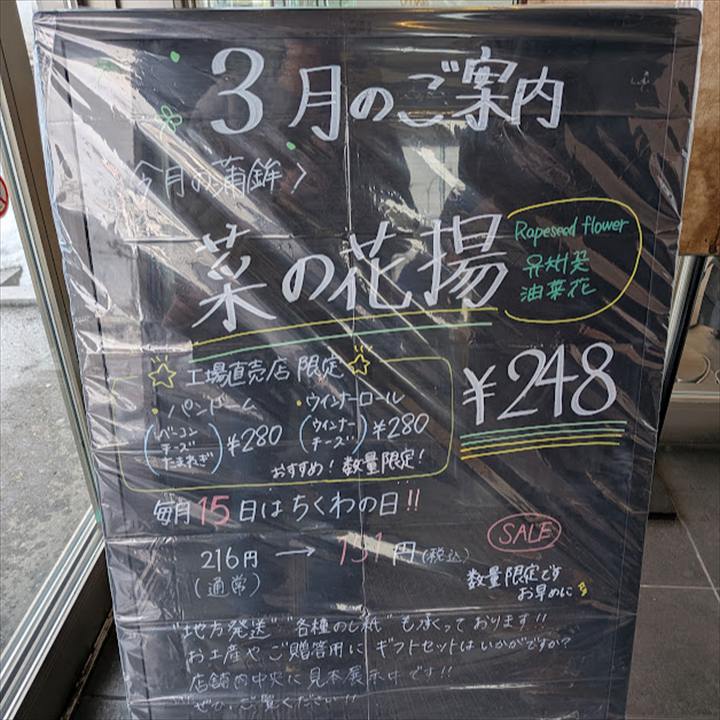 3月のご案内
今月の蒲鉾>
菜の花揚
Rapeseed flower
유채꽃
油菜花
¥248
工場直売店 限定
・パンドーム
(ベーコン チーズ たまねぎ) ¥280
・ウインナーロール
(ウインナー チーズ) ¥280
おすすめ! 数量限定!
毎月15日はちくわの日!!
216円(通常) → 151円(税込)
SALE
数量限定です
お早めに
"地方発送" "各種のし紙" も承っております!!
お土産やご贈答用に ギフトセットはいかがですか?
店舗内中央に見本展示中です!!
ぜひ、ご覧ください!!